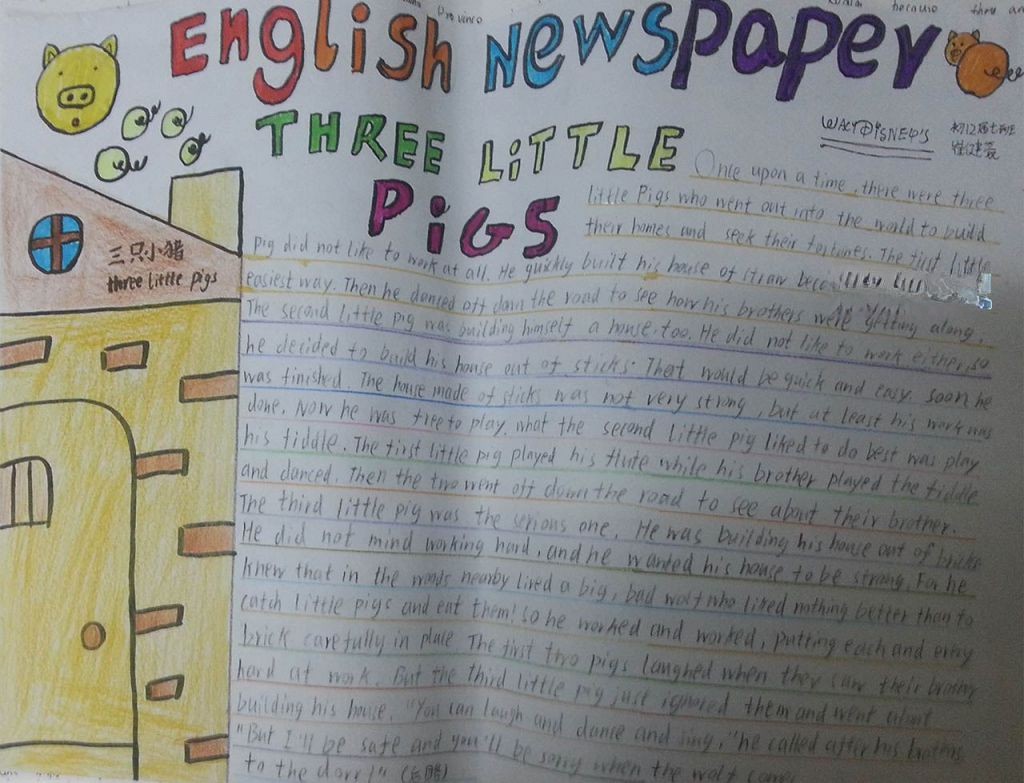 Province
because they an
English Newspaper
THREE LiTTLE
PiGS
WALT DiSNEY'S
初12届七班
三只小猪
three little pigs
Once upon a time, there were three
little Pigs who went out into the world to build
their homes and seek their fortunes. The first little
pig did not like to work at all. He quickly built his house of straw
easiest way. Then he danced off down the road to see how his brothers were getting along,
The second little pig was building himself a house, too. He did not like to work either, so
he decided to build his house out of sticks. That would be quick and easy. soon he
was finished. The house made of sticks was not very strong, but at least his work was
done. Now he was free to play. what the second little pig liked to do best was play
his fiddle. The first little pig played his flute while his brother played the fiddle
and danced. Then the two went off down the road to see about their brother.
The third little pig was the serious one. He was building his house out of bricks
He did not mind working hard, and he wanted his house to be strong. For he
knew that in the woods nearby lived a big, bad wolf who liked nothing better than to
catch little pigs and eat them! So he worked and worked, putting each and every
brick carefully in place The first two pigs laughed when they saw their brother
hard at work. But the third little pig just ignored them and went about
building his house. "You can laugh and dance and sing," he called after his brothers
"But I'll be safe and you'll be sorry when the wolf comes
to the door!"